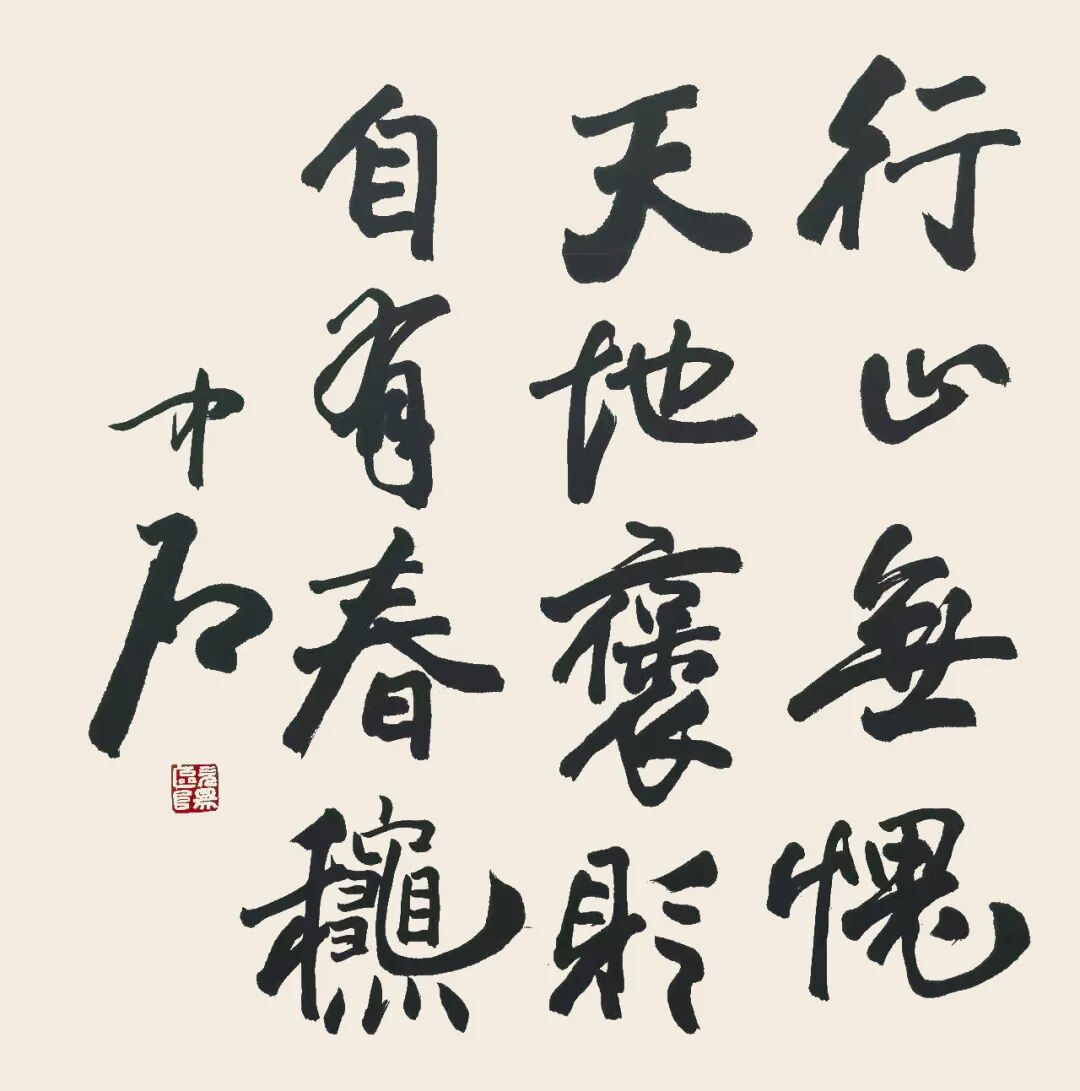 行止無愧
天地褒貶
自有春龝
中石